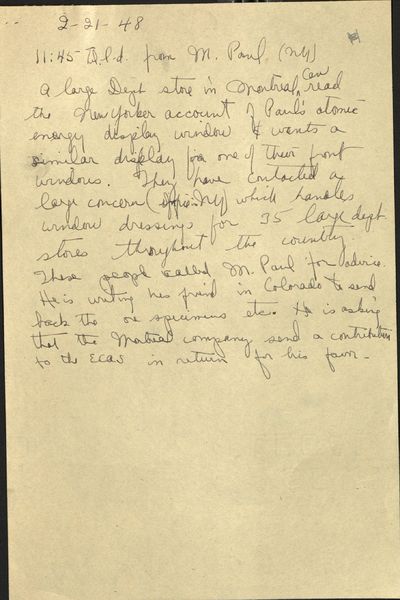 2-21-48
11:45 T.l.d. from M. Paul (NY)
A large Dept store in Montreal, Can read
the New Yorker account of Paul's atomic
energy display window & wants a
similar display for one of their front
windows. They have contacted a
large concern (office NY) which handles
window dressings for 35 large dept.
stores throughout the country.
These people called M. Paul for advice.
He is writing his friend in Colorado to send
back the ore specimens etc. He is asking
that the Montreal company send a contribution
to the ECAS in return for his favor-